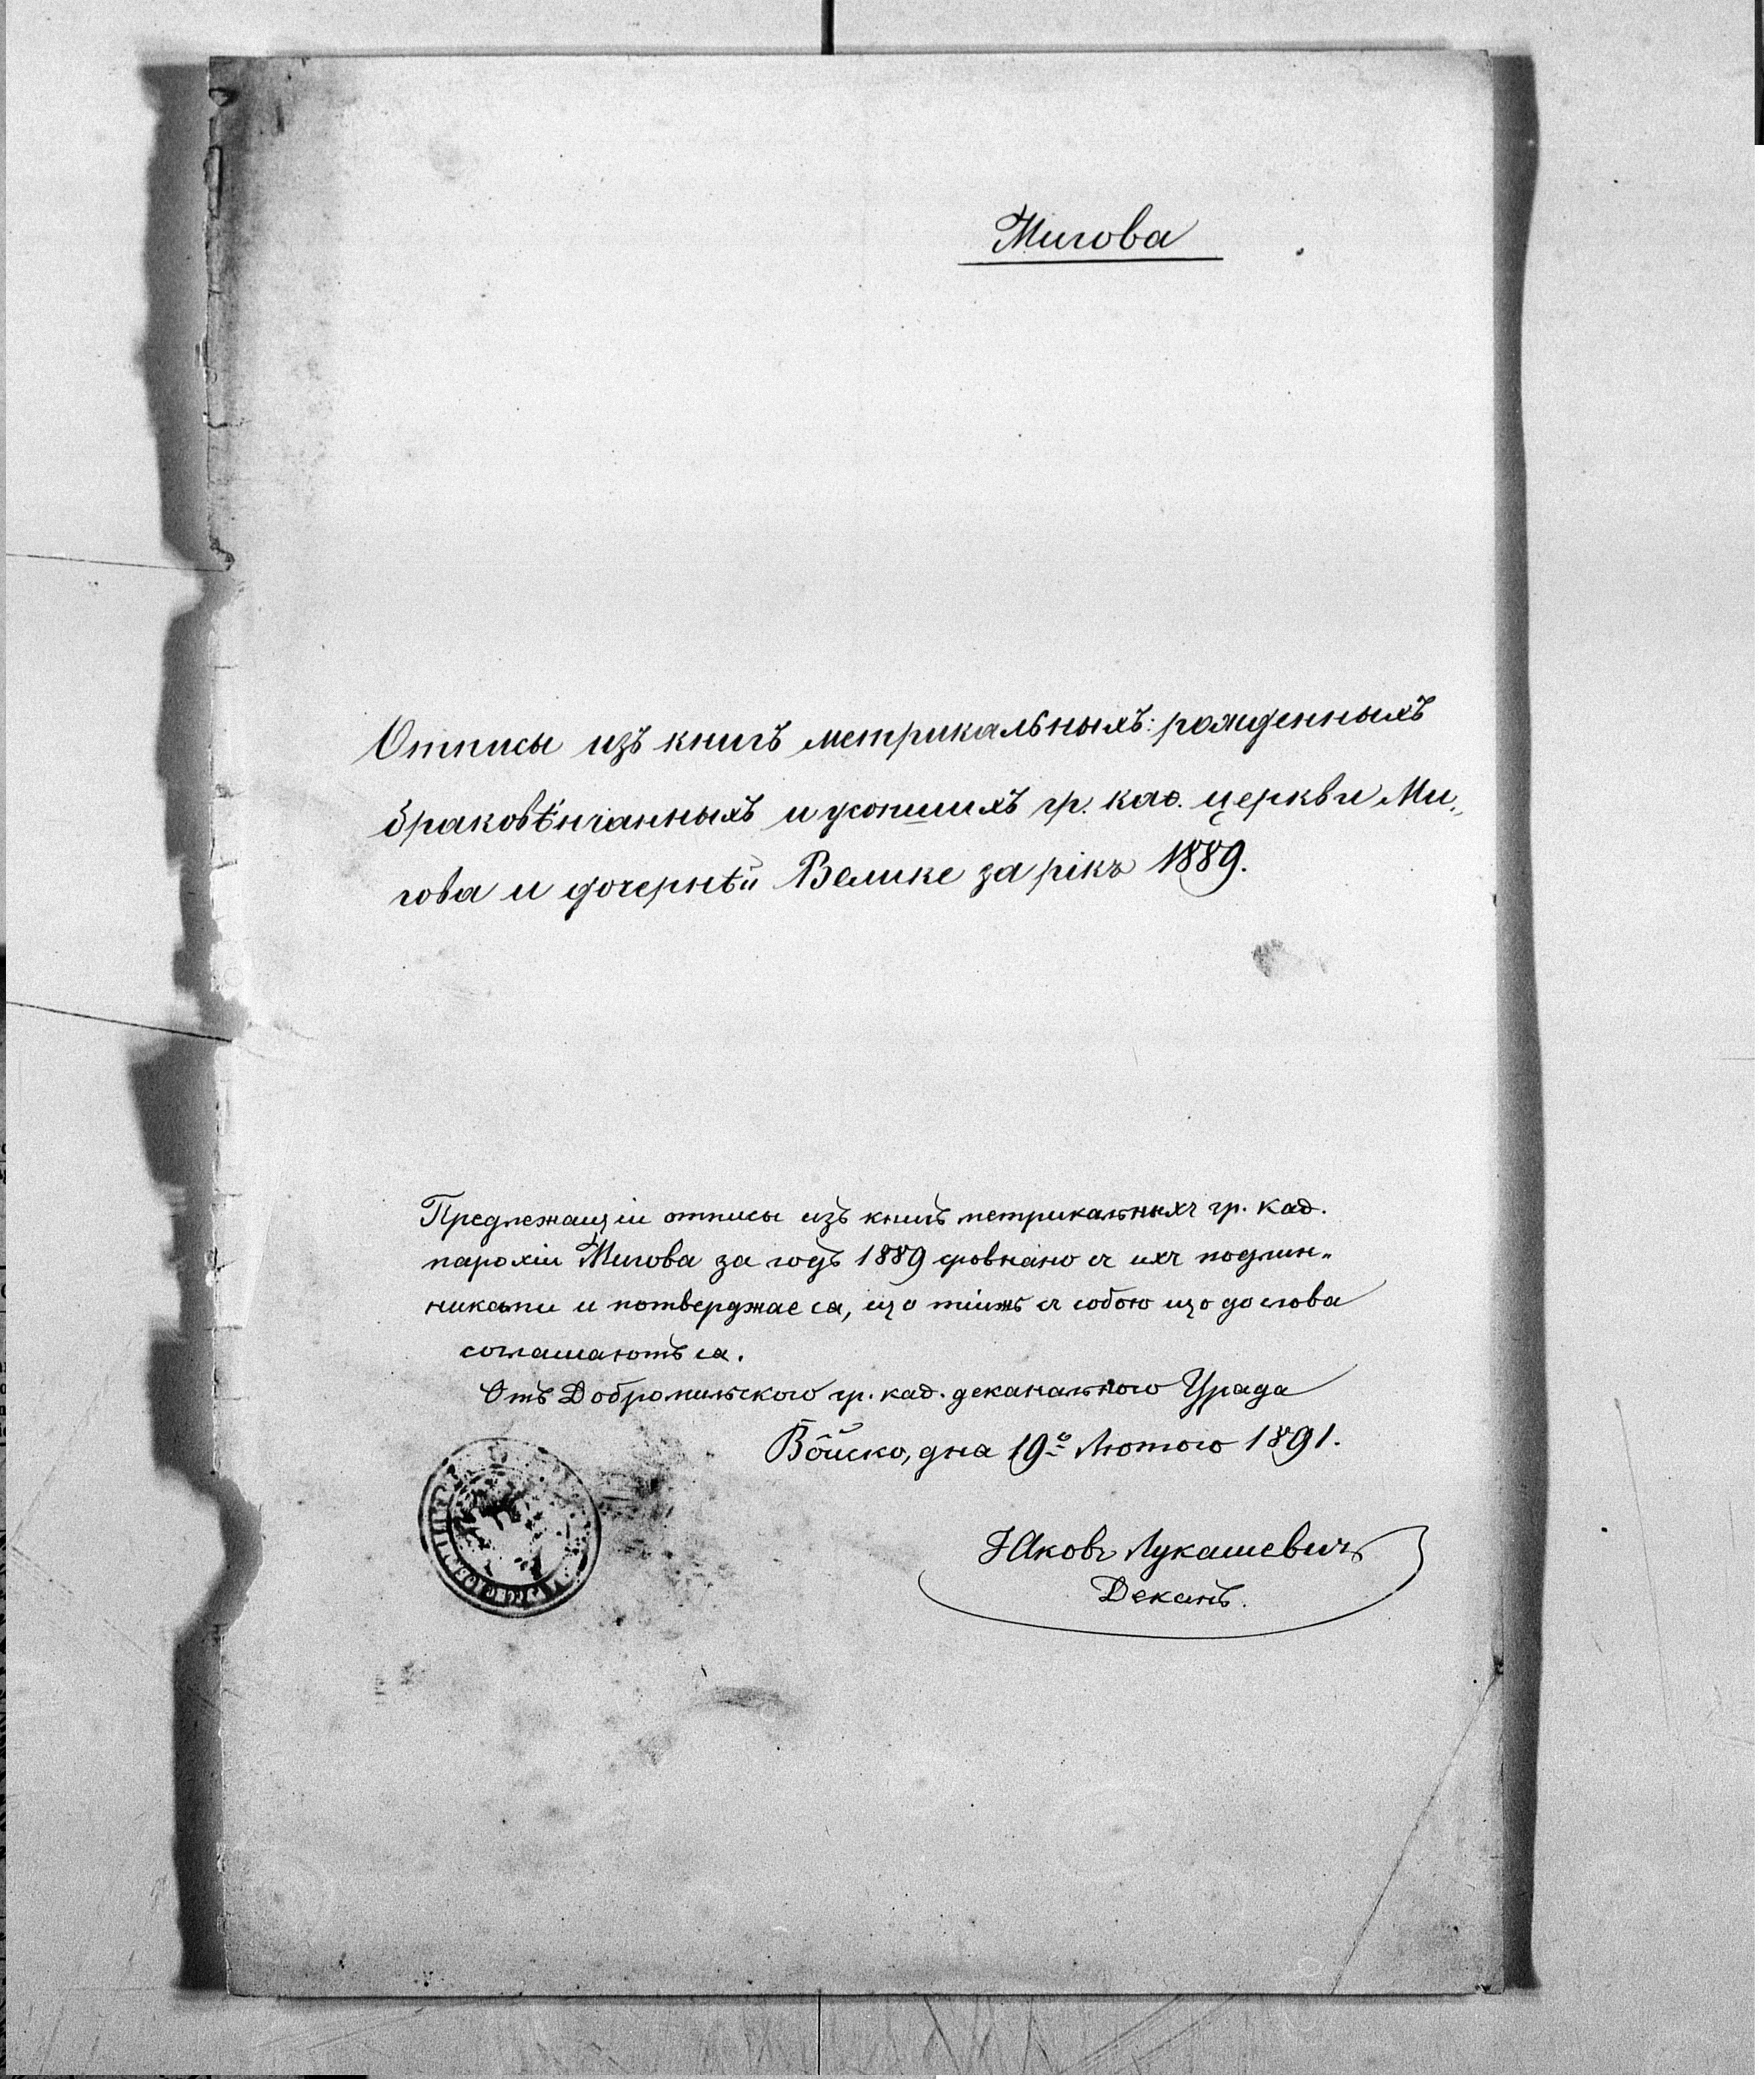 Мигова
Отписы изъ книгъ метрикальныхъ: рожденныхъ
браковѣнчанныхъ и усопшихъ гр. каѳ. церкви Ми„
гова и дочернѣй Велике за рікъ 1889.
Предлежащіи отписы изъ книгъ метрикальныхъ гр. каѳ.
парохіи Мигова за годъ 1889 зровнано съ ихъ подлин„
никами и потверджае ся, що тіижъ съ собою що до слова
соглашаютъ ся.
Отъ Добромильского гр. каѳ. деканального Уряда
Вôйско, дня 19го Лютого 1891.
Яковъ Лукашевичъ
Деканъ.